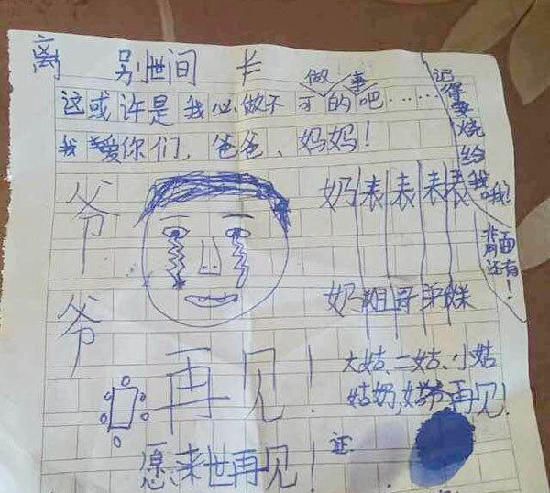 离别世间
做事
这或许是我必做不可的吧……
我爱你们，爸爸、妈妈！
记得要烧给我哦！
背面还有！
爷爷
奶奶
表姐
表哥
表弟
表妹
再见！
大姑、二姑、小姑
姑奶,姑爷再见!
愿来世再见！
证